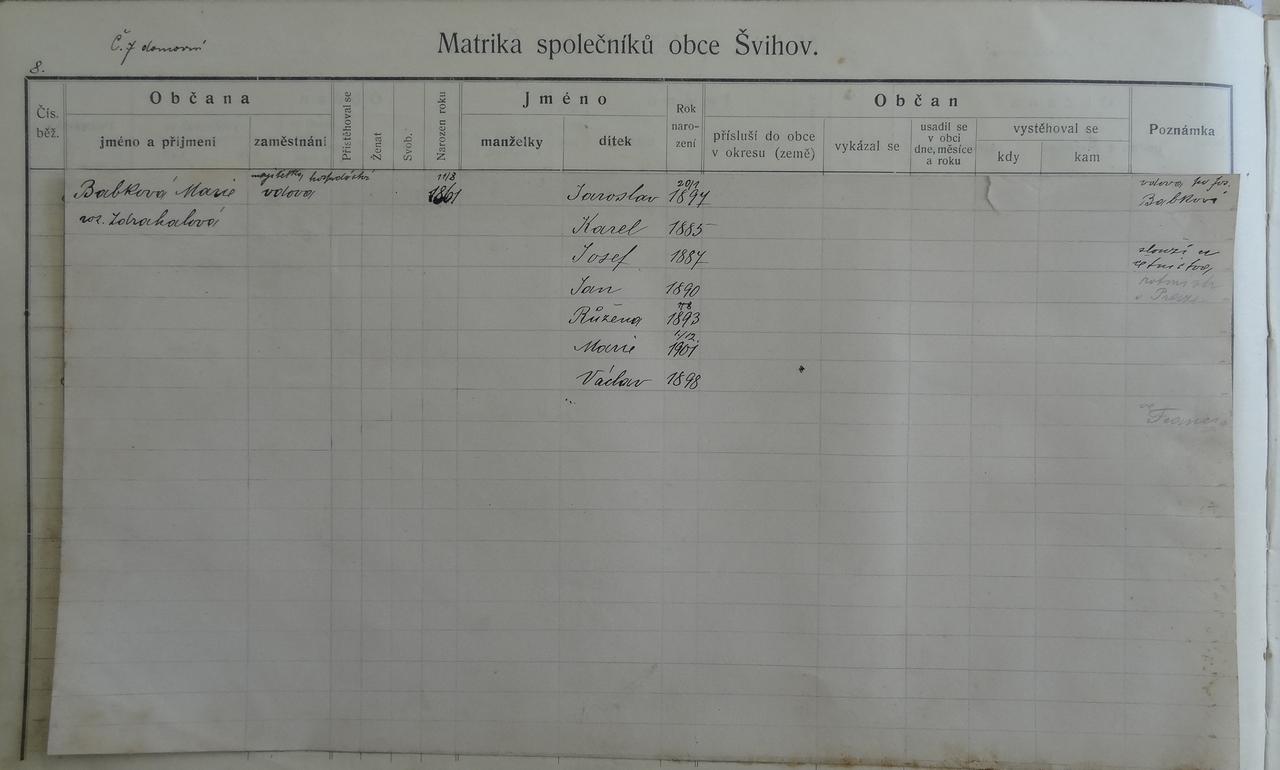 Č. 7 domovní
Matrika společníků obce Švihov.
8.
Čís. běž.
Občana
jméno a příjmení
zaměstnání
Přistěhoval se
Ženat
Svob.
Narozen roku
Jméno
manželky
dítek
Rok naro- zení
Občan
přísluší do obce v okresu (země)
vykázal se
usadil se v obci dne, měsíce a roku
vystěhoval se
kdy
kam
Poznámka
majitelka hospodářství
11/8
20/1
vdova po Jos.
Babková Marie vdova 1861 Jaroslav 1897 Babkovi
roz. Zdrahalová Karel 1885
Josef 1887 slouží u
četnictva
Jan 1890
7/8
Růžena 1893
Marie 1901
Václav 1898